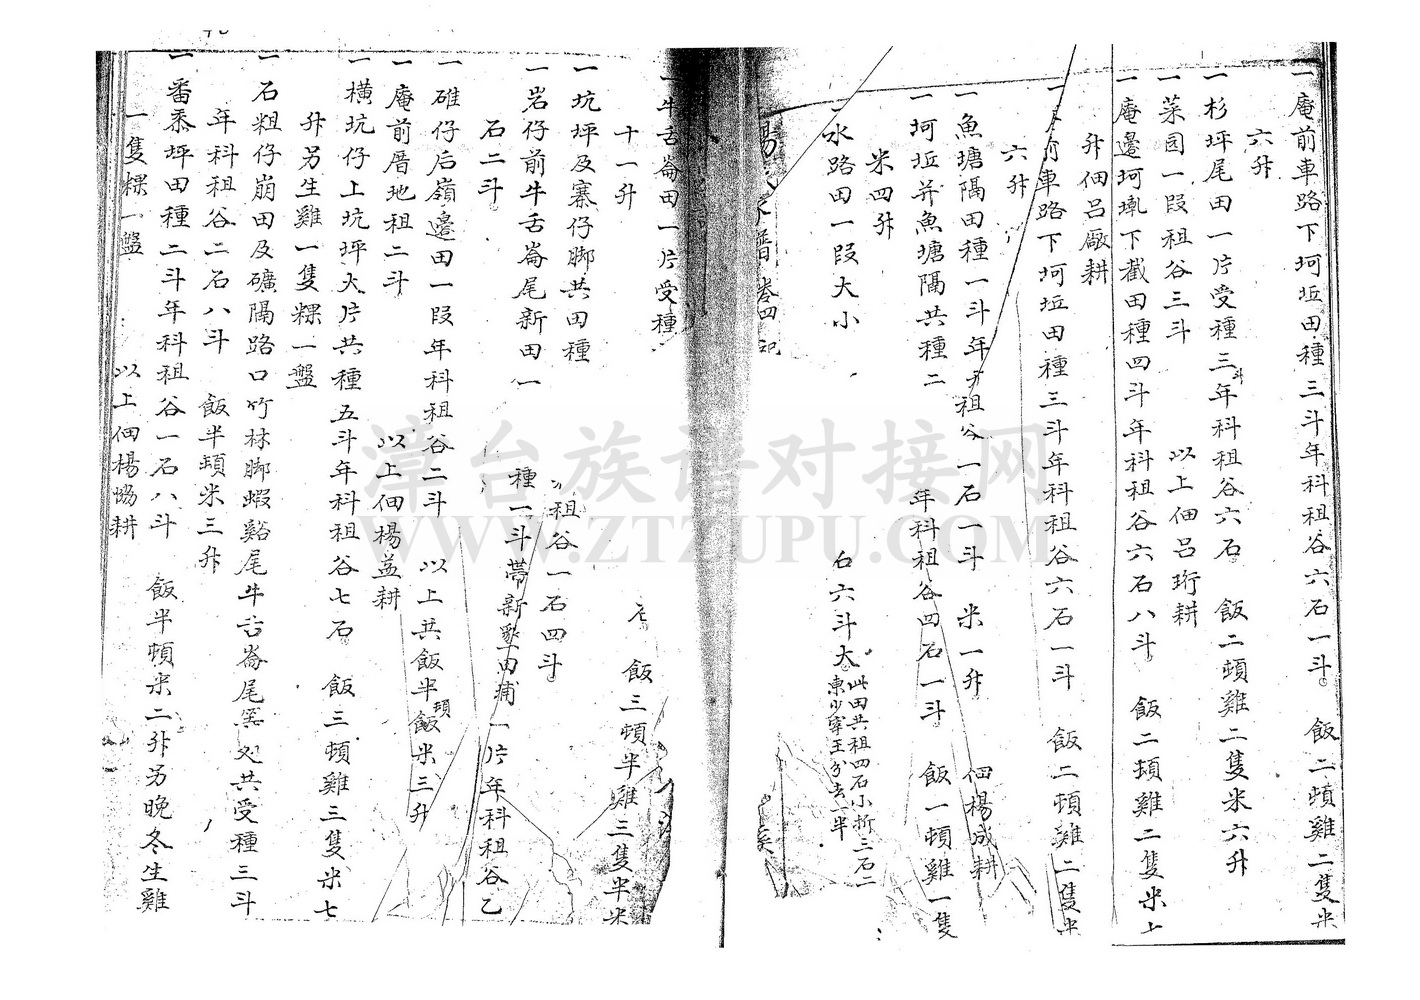 一庵前車路下坷坵田種三斗年科租谷六石一斗　飯二頓雞二隻米
六升
一杉坪尾田一片受種三斗年科租谷六石　飯二頓雞二隻米六升
一菜园一段租谷三斗　以上佃吕珩耕
一庵邊坷墘下截田種四斗年科租谷六石八斗　飯二頓雞二隻米七
升佃吕廠耕
一　前車路下坷坵田種三斗年科租谷六石一斗　飯二頓雞二隻米
六升
一魚塘隔田種一斗年　租谷一石一斗　米一升　佃楊成耕
一坷坵并魚塘隔共種二　年科租谷四石一斗　飯一頓雞一隻
米四升
一水路田一段大小　石六斗大　此田共租四石小折三石二
東少寧王分去一半
楊氏家譜卷四
一牛舌崙田一片受種　飯三頓半雞三隻半米
十一升
一坑坪及寨仔脚共田種　租谷一石四斗
一岩仔前牛舌崙尾新田一　種一斗帶新墾田埔一片年科租谷乙
石二斗
一碓仔后嶺邊田一段年科租谷二斗　以上共飯半頓飯米三升
一庵前厝地租二斗　以上佃楊益耕
一橫坑仔上坑坪大片共種五斗年科租谷七石　飯三頓雞三隻米七
升另生雞一隻粿一盤
一石粗仔崩田及礦隔路口竹林脚蝦谿尾牛舌崙尾窯处共受種三斗
年科租谷二石八斗　飯半頓米三升
一番黍坪田種二斗年科租谷一石八斗　飯半頓米二升另晚冬生雞
一隻粿一盤　以上佃楊恊耕
漳台族谱对接网
WWW.ZTZUPU.COM